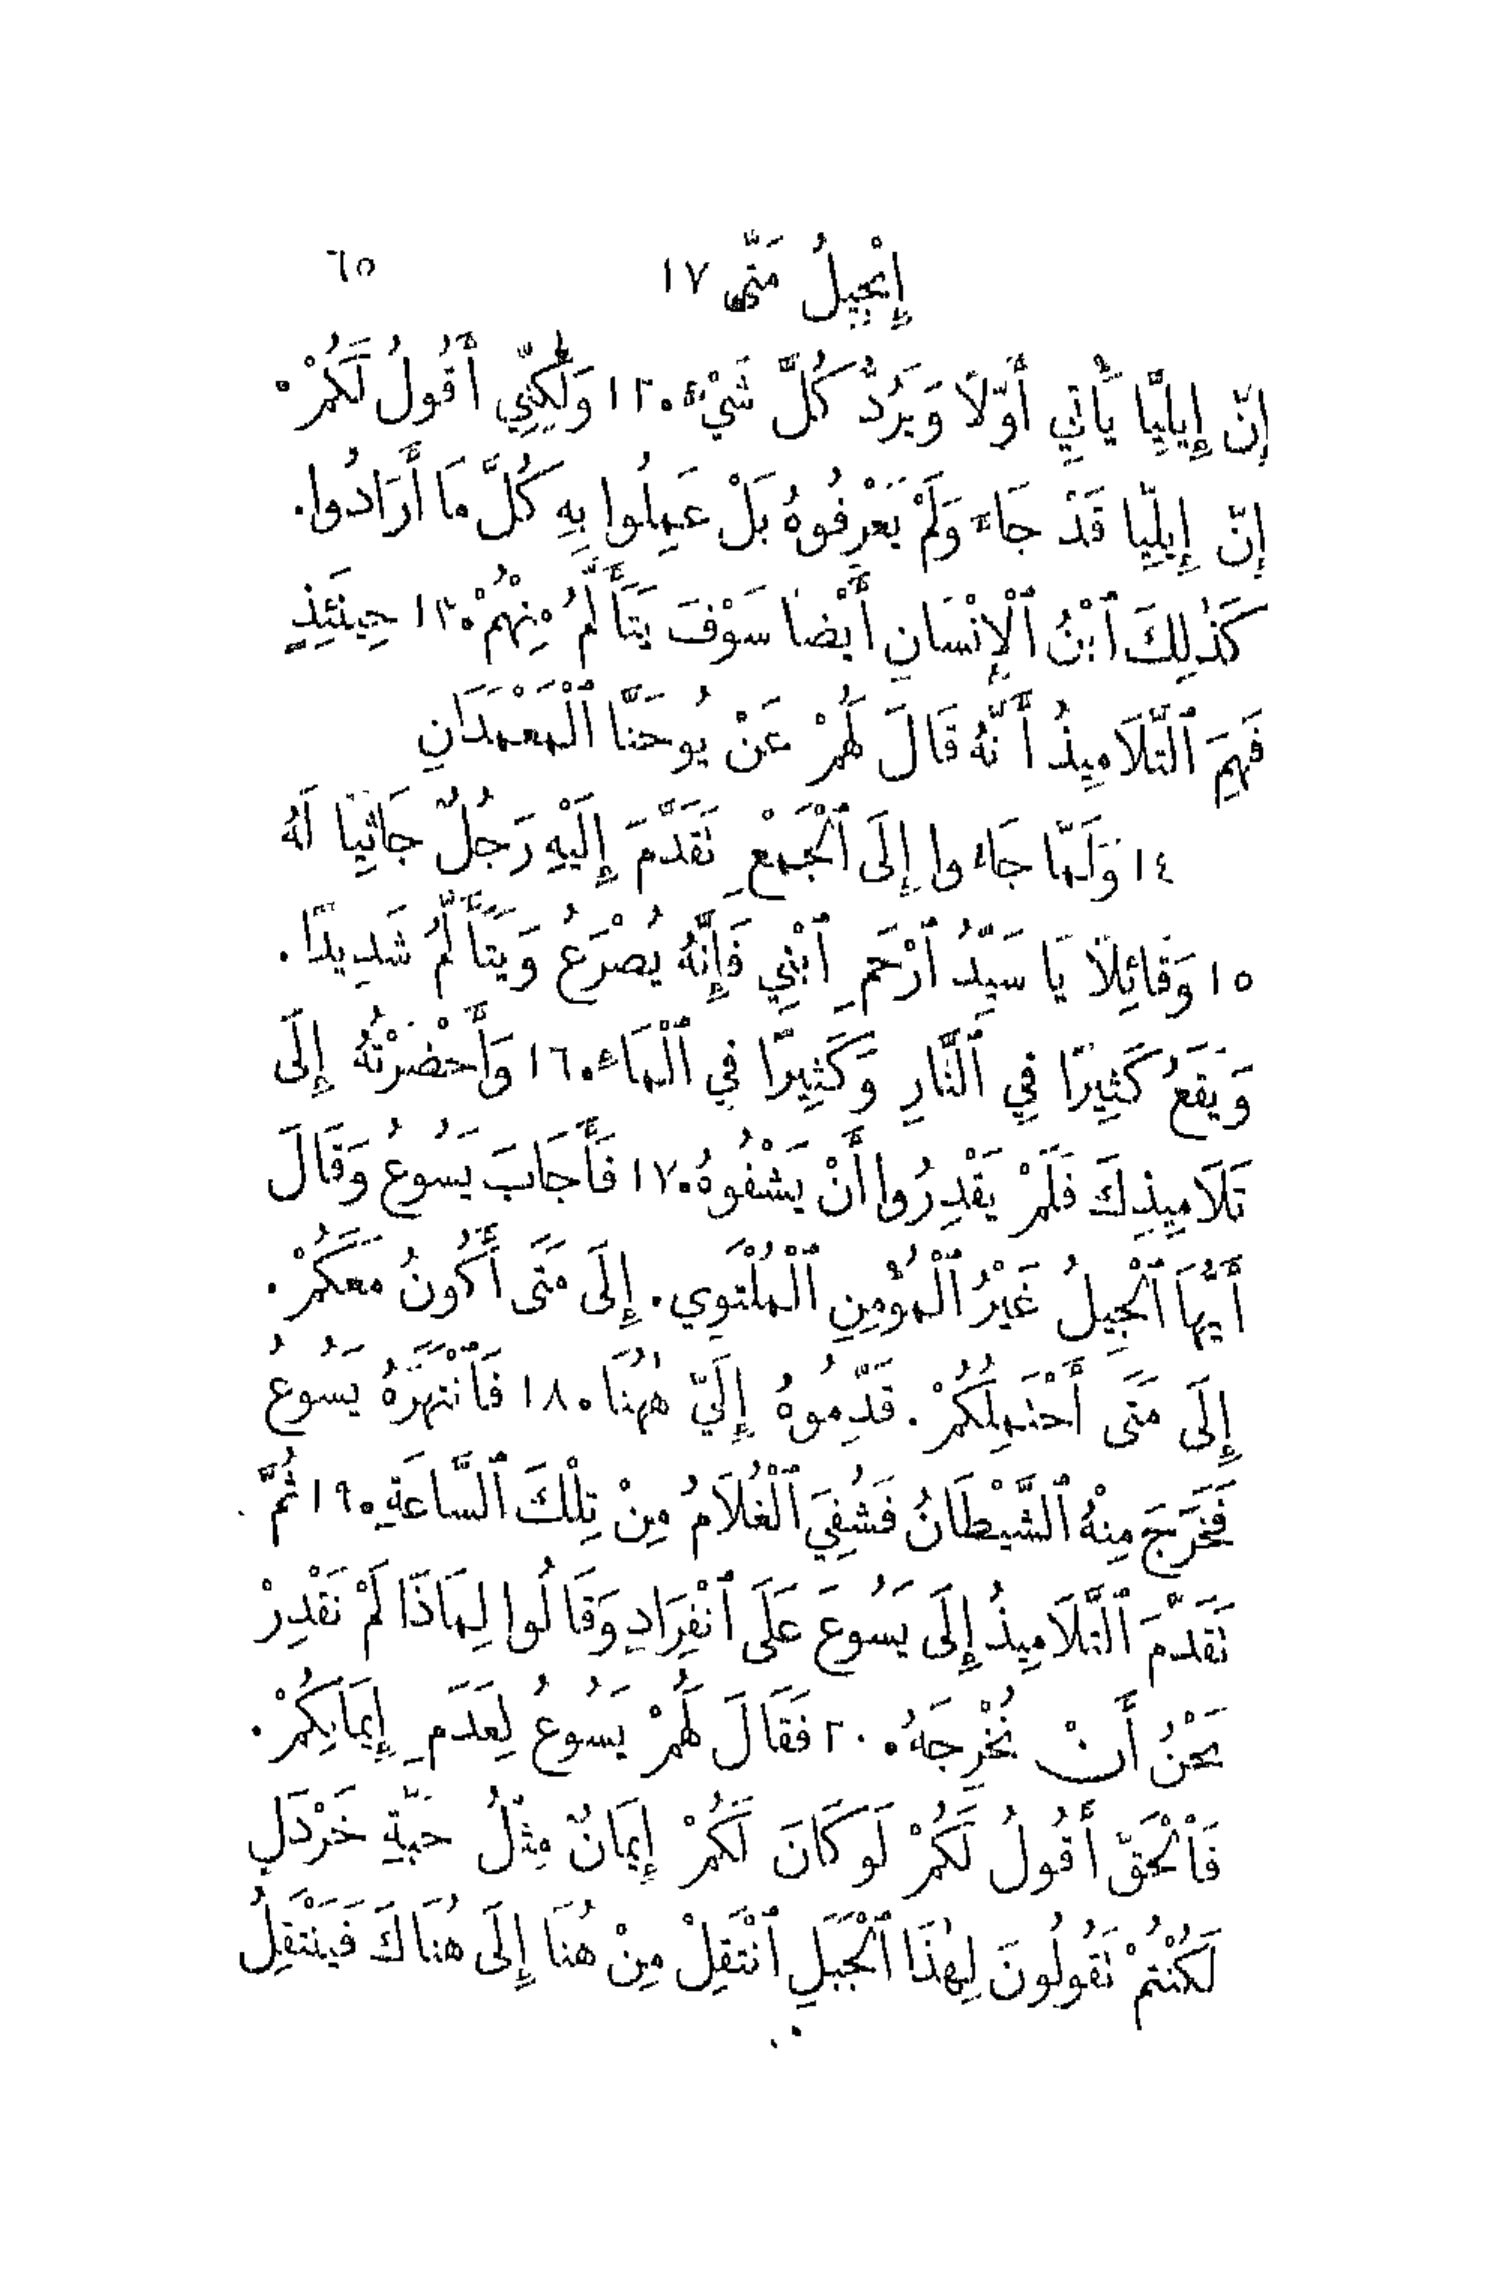 إِنْجِيلُ مَتَّى ١٧ ٦٥
إِنَّ إِيلِيَّا يَأْتِي أَوَّلًا وَيَرُدُّ كُلَّ شَيْءٍ. ١٢ وَلٰكِنِّي أَقُولُ لَكُمْ.
إِنَّ إِيلِيَّا قَدْ جَاءَ وَلَمْ يَعْرِفُوهُ بَلْ عَمِلُوا بِهِ كُلَّ مَا أَرَادُوا.
كَذٰلِكَ ٱبْنُ ٱلْإِنْسَانِ أَيْضًا سَوْفَ يَتَأَلَّمُ مِنْهُمْ. ١٣ حِينَئِذٍ
فَهِمَ ٱلتَّلَامِيذُ أَنَّهُ قَالَ لَهُمْ عَنْ يُوحَنَّا ٱلْمَعْمَدَانِ
١٤ وَلَمَّا جَاءُوا إِلَى ٱلْجَمْعِ تَقَدَّمَ إِلَيْهِ رَجُلٌ جَاثِيًا لَهُ
١٥ وَقَائِلًا يَا سَيِّدُ ٱرْحَمِ ٱبْنِي فَإِنَّهُ يُصْرَعُ وَيَتَأَلَّمُ شَدِيدًا.
وَيَقَعُ كَثِيرًا فِي ٱلنَّارِ وَكَثِيرًا فِي ٱلْمَاءِ. ١٦ وَأَحْضَرْتُهُ إِلَى
تَلَامِيذِكَ فَلَمْ يَقْدِرُوا أَنْ يَشْفُوهُ. ١٧ فَأَجَابَ يَسُوعُ وَقَالَ
أَيُّهَا ٱلْجِيلُ غَيْرُ ٱلْمُؤْمِنِ ٱلْمُلْتَوِي. إِلَى مَتَى أَكُونُ مَعَكُمْ.
إِلَى مَتَى أَحْتَمِلُكُمْ. قَدِّمُوهُ إِلَيَّ هٰهُنَا. ١٨ فَٱنْتَهَرَهُ يَسُوعُ
فَخَرَجَ مِنْهُ ٱلشَّيْطَانُ فَشُفِيَ ٱلْغُلَامُ مِنْ تِلْكَ ٱلسَّاعَةِ. ١٩ ثُمَّ
تَقَدَّمَ ٱلتَّلَامِيذُ إِلَى يَسُوعَ عَلَى ٱنْفِرَادٍ وَقَالُوا لِمَاذَا لَمْ نَقْدِرْ
نَحْنُ أَنْ نُخْرِجَهُ. ٢٠ فَقَالَ لَهُمْ يَسُوعُ لِعَدَمِ إِيمَانِكُمْ.
فَٱلْحَقَّ أَقُولُ لَكُمْ لَوكَانَ لَكُمْ إِيمَانٌ مِثْلُ حَبَّةِ خَرْدَلٍ
لَكُنْتُمْ تَقُولُونَ لِهٰذَا ٱلْجَبَلِ ٱنْتَقِلْ مِنْ هُنَا إِلَى هُنَاكَ فَيَنْتَقِلُ